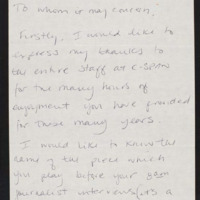 To whom it may concern,
Firstly, I would like to
express my thanks to
the entire staff at e-
for the many hours of
enjoyment you have provided
for those many years.
I would like to know the
name of the piece which
you play before your
journalist interviews